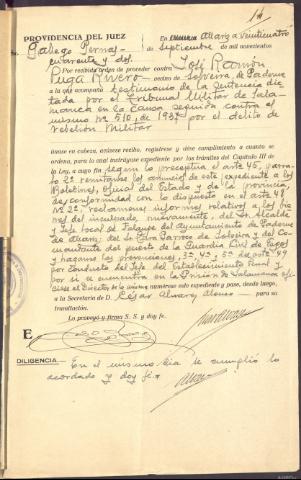 PROVIDENCIA DEL JUEZ
En Allariz a veinticuatro
Gallego Pernas
de Septiembre de mil novecientos
cuarenta y dos.
Por recibida orden de proceder contra José Ramón
Puga Rivero vecino de Solveira, de Paderne
a la que acompaña testimonio de la Sentencia dic-
tada por el Tribunal Militar de Sala-
manca en la Causa seguida contra el
mismo nº 510, de 1937 por el delito de
rebelión Militar
únase en cabeza, acúsese recibo, regístrese y dése cumplimiento a cuanto se
ordena, para lo cual instrúyase expediente por los trámites del Capítulo III de
la Ley, a cuyo fin según preceptúa el artº 45, párra-
fo 2º remítanse los anuncios de este expediente a los
Boletines, oficial del Estado y de la provincia,
de conformidad con lo dispuesto en el artº 48
nº 2º reclámense informes relativos a los bie-
nes del inculpado, nuevamente, del Sr. Alcalde
y Jefe local de Falange del Ayuntamiento de Paderne
de Allariz, del Sr. Cura Párroco de Solveira y del Co-
mandante del puesto de la Guardia Civil de
y háganse las prevenciones, 3ª, 4ª y 5ª del artº 49
por conducto del Jefe del Establecimiento Penal y
por si se encuentra en la Prisión de Salamanca ofí-
ciese al Director de la misma, numérese este expediente y pase, desde luego,
a la Secretaría de D. César Alvarez Alonso para su
tramitación.
Lo proveyó y firma S. S. y doy fe.
E
DILIGENCIA.
En el mismo día se cumplió lo
acordado y doy fe